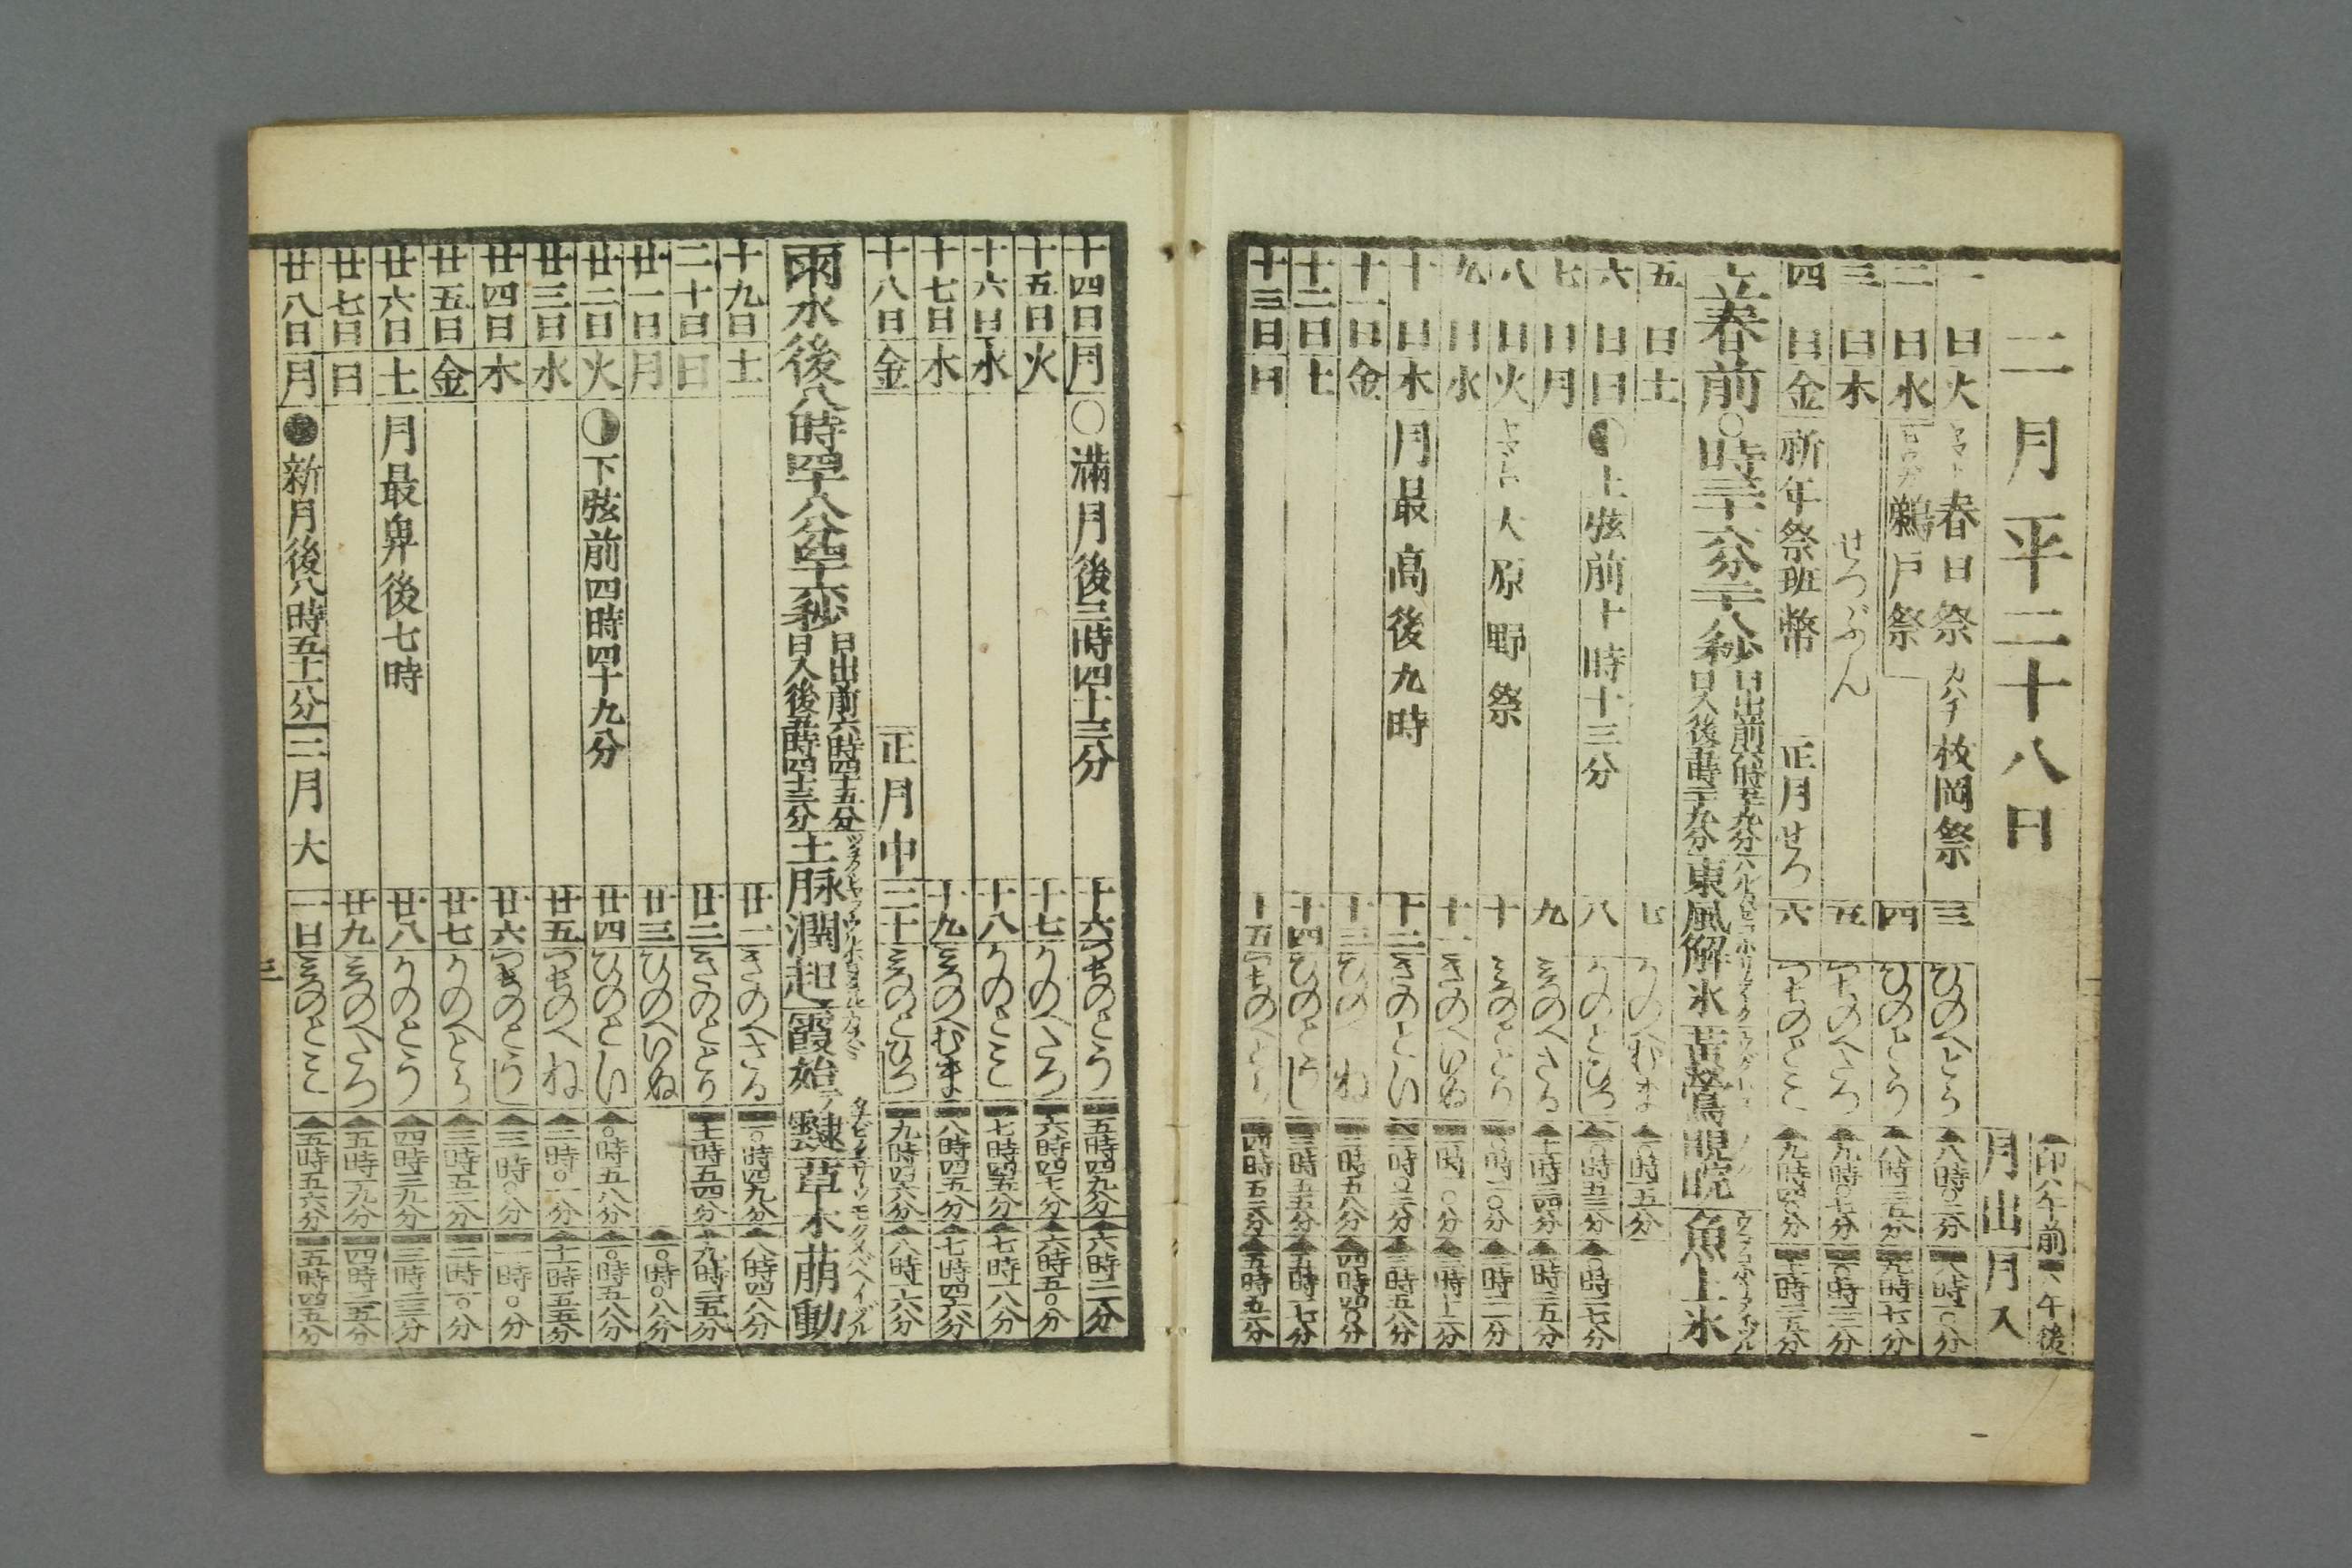 二月平二十八日
▲印ハ午前 ▬ハ午後
月出 月入
一日火 ヤマト 春日祭 カハチ 枚岡祭 三 ひのへとら ▲八時〇二分 ▬八時一〇分
二日水 ヒウガ 鵜戸祭 四 ひのとう ▲八時三五分 ▬九時一七分
三日木 せつぶん 五 つちのへたつ ▲九時〇七分 ▬一〇時二三分
四日金 祈年祭班幣 正月せつ 六 つちのとミ ▲九時四〇分 ▬十一時三五分
立春前〇時三十六分二十八秒 日出前六時五十九分 日入後五時二十九分 東風解氷 黄鶯睍睆 魚上氷
五日土 七 かのへむま ▲一〇時一五分
六日日 上弦前十時十三分 八 かのとひつじ ▲一〇時五三分 ▲〇時一七分
七日月 九 ミつのへさる ▲十一時三四分 ▲一時二五分
八日火 ヤマシロ 大原野祭 十 ミつのととり ▬〇時二〇分 ▲二時二一分
九日水 十一 きのへいぬ ▬一時一〇分 ▲三時十二分
十日木 月最高後九時 十二 きのとい ▬二時〇三分 ▲三時五八分
十一日金 十三 ひのへね ▬二時五八分 ▲四時四〇分
十二日土 十四 ひのとうし ▬三時五五分 ▲五時一七分
十三日日 十五 つちのへとら ▬四時五二分 ▲五時五一分
十四日月 ○ 満月後三時四十三分 十六 つちのとう ▬五時四九分 ▲六時二一分
十五日火 十七 かのへたつ ▬六時四七分 ▲六時五〇分
十六日水 十八 かのとミ ▬七時四五分 ▲七時一八分
十七日木 十九 ミつのへむま ▬八時四五分 ▲七時四六分
十八日金 正月中 二十 ミつのとひつじ ▬九時四六分 ▲八時一六分
雨水後八時四十八分四十六秒 日出前六時四十五分 日入後五時四十三分 土脉潤起 霞始テ靆 草木萠動
十九日土 廿一 きのへさる ▬一〇時四九分 ▲八時四八分
二十日日 廿二 きのととり ▬十一時五四分 ▲九時二五分
廿一日月 廿三 ひのへいぬ ▲一〇時〇八分
廿二日火 下弦前四時四十九分 廿四 ひのとい ▲〇時五八分 ▲一〇時五八分
廿三日水 廿五 つちのへね ▲二時〇一分 ▲十一時五五分
廿四日木 廿六 つちのとうし ▲三時〇分 ▬一時〇分
廿五日金 廿七 かのへとら ▲三時五二分 ▬二時一〇分
廿六日土 月最卑後七時 廿八 かのとう ▲四時三九分 ▬三時二三分
廿七日日 廿九 ミつのへたつ ▲五時一九分 ▬四時三五分
廿八日月 ● 新月後八時五十一分 二月大 一日 ミつのとミ ▲五時五六分 ▬五時四五分
三